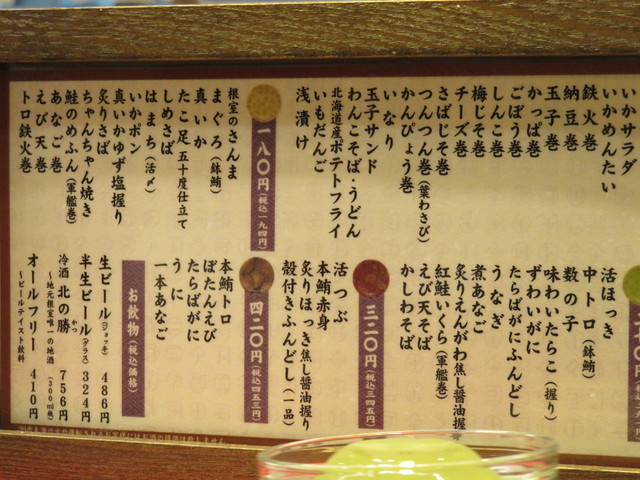 いかサラダ
いかめんたい
鉄火巻
納豆巻
玉子巻
かっぱ巻
ごぼう巻
しんこ巻
梅じそ巻
チーズ巻
さばじそ巻
つんつん巻(葉わさび)
かんぴょう巻
いなり
玉子サンド
わんこそば・うどん
北海道産ポテトフライ
いもだんご
浅漬け
一八〇円(税込一九四円)
根室のさんま
まぐろ(鉢鮪)
真いか
たこ足 五十度仕立て
しめさば
はまち(活〆)
いかポン
真いかゆず塩握り
炙りさば
ちゃんちゃん焼き
鮭のめふん(軍艦巻)
あなご巻
えび天巻
トロ鉄火巻
活ほっき
中トロ(鉢鮪)
数の子
味わいたらこ(握り)
ずわいがに
たらばがにふんどし
うなぎ
煮あなご
炙りえんがわ焦し醤油握り
紅鮭いくら(軍艦巻)
えび天そば
かしわそば
三二〇円(税込三四五円)
活つぶ
本鮪赤身
炙りほっき焦し醤油握り
殻付きふんどし(一品)
四二〇円(税込四五三円)
本鮪トロ
ぼたんえび
たらばがに
うに
一本あなご
お飲物(税込価格)
生ビール(ジョッキ) 486円
半生ビール(グラス) 324円
冷酒 北の勝 かつ 756円
〜地元根室唯一の地酒(300ml瓶)
オールフリー 410円
〜ビールテイスト飲料